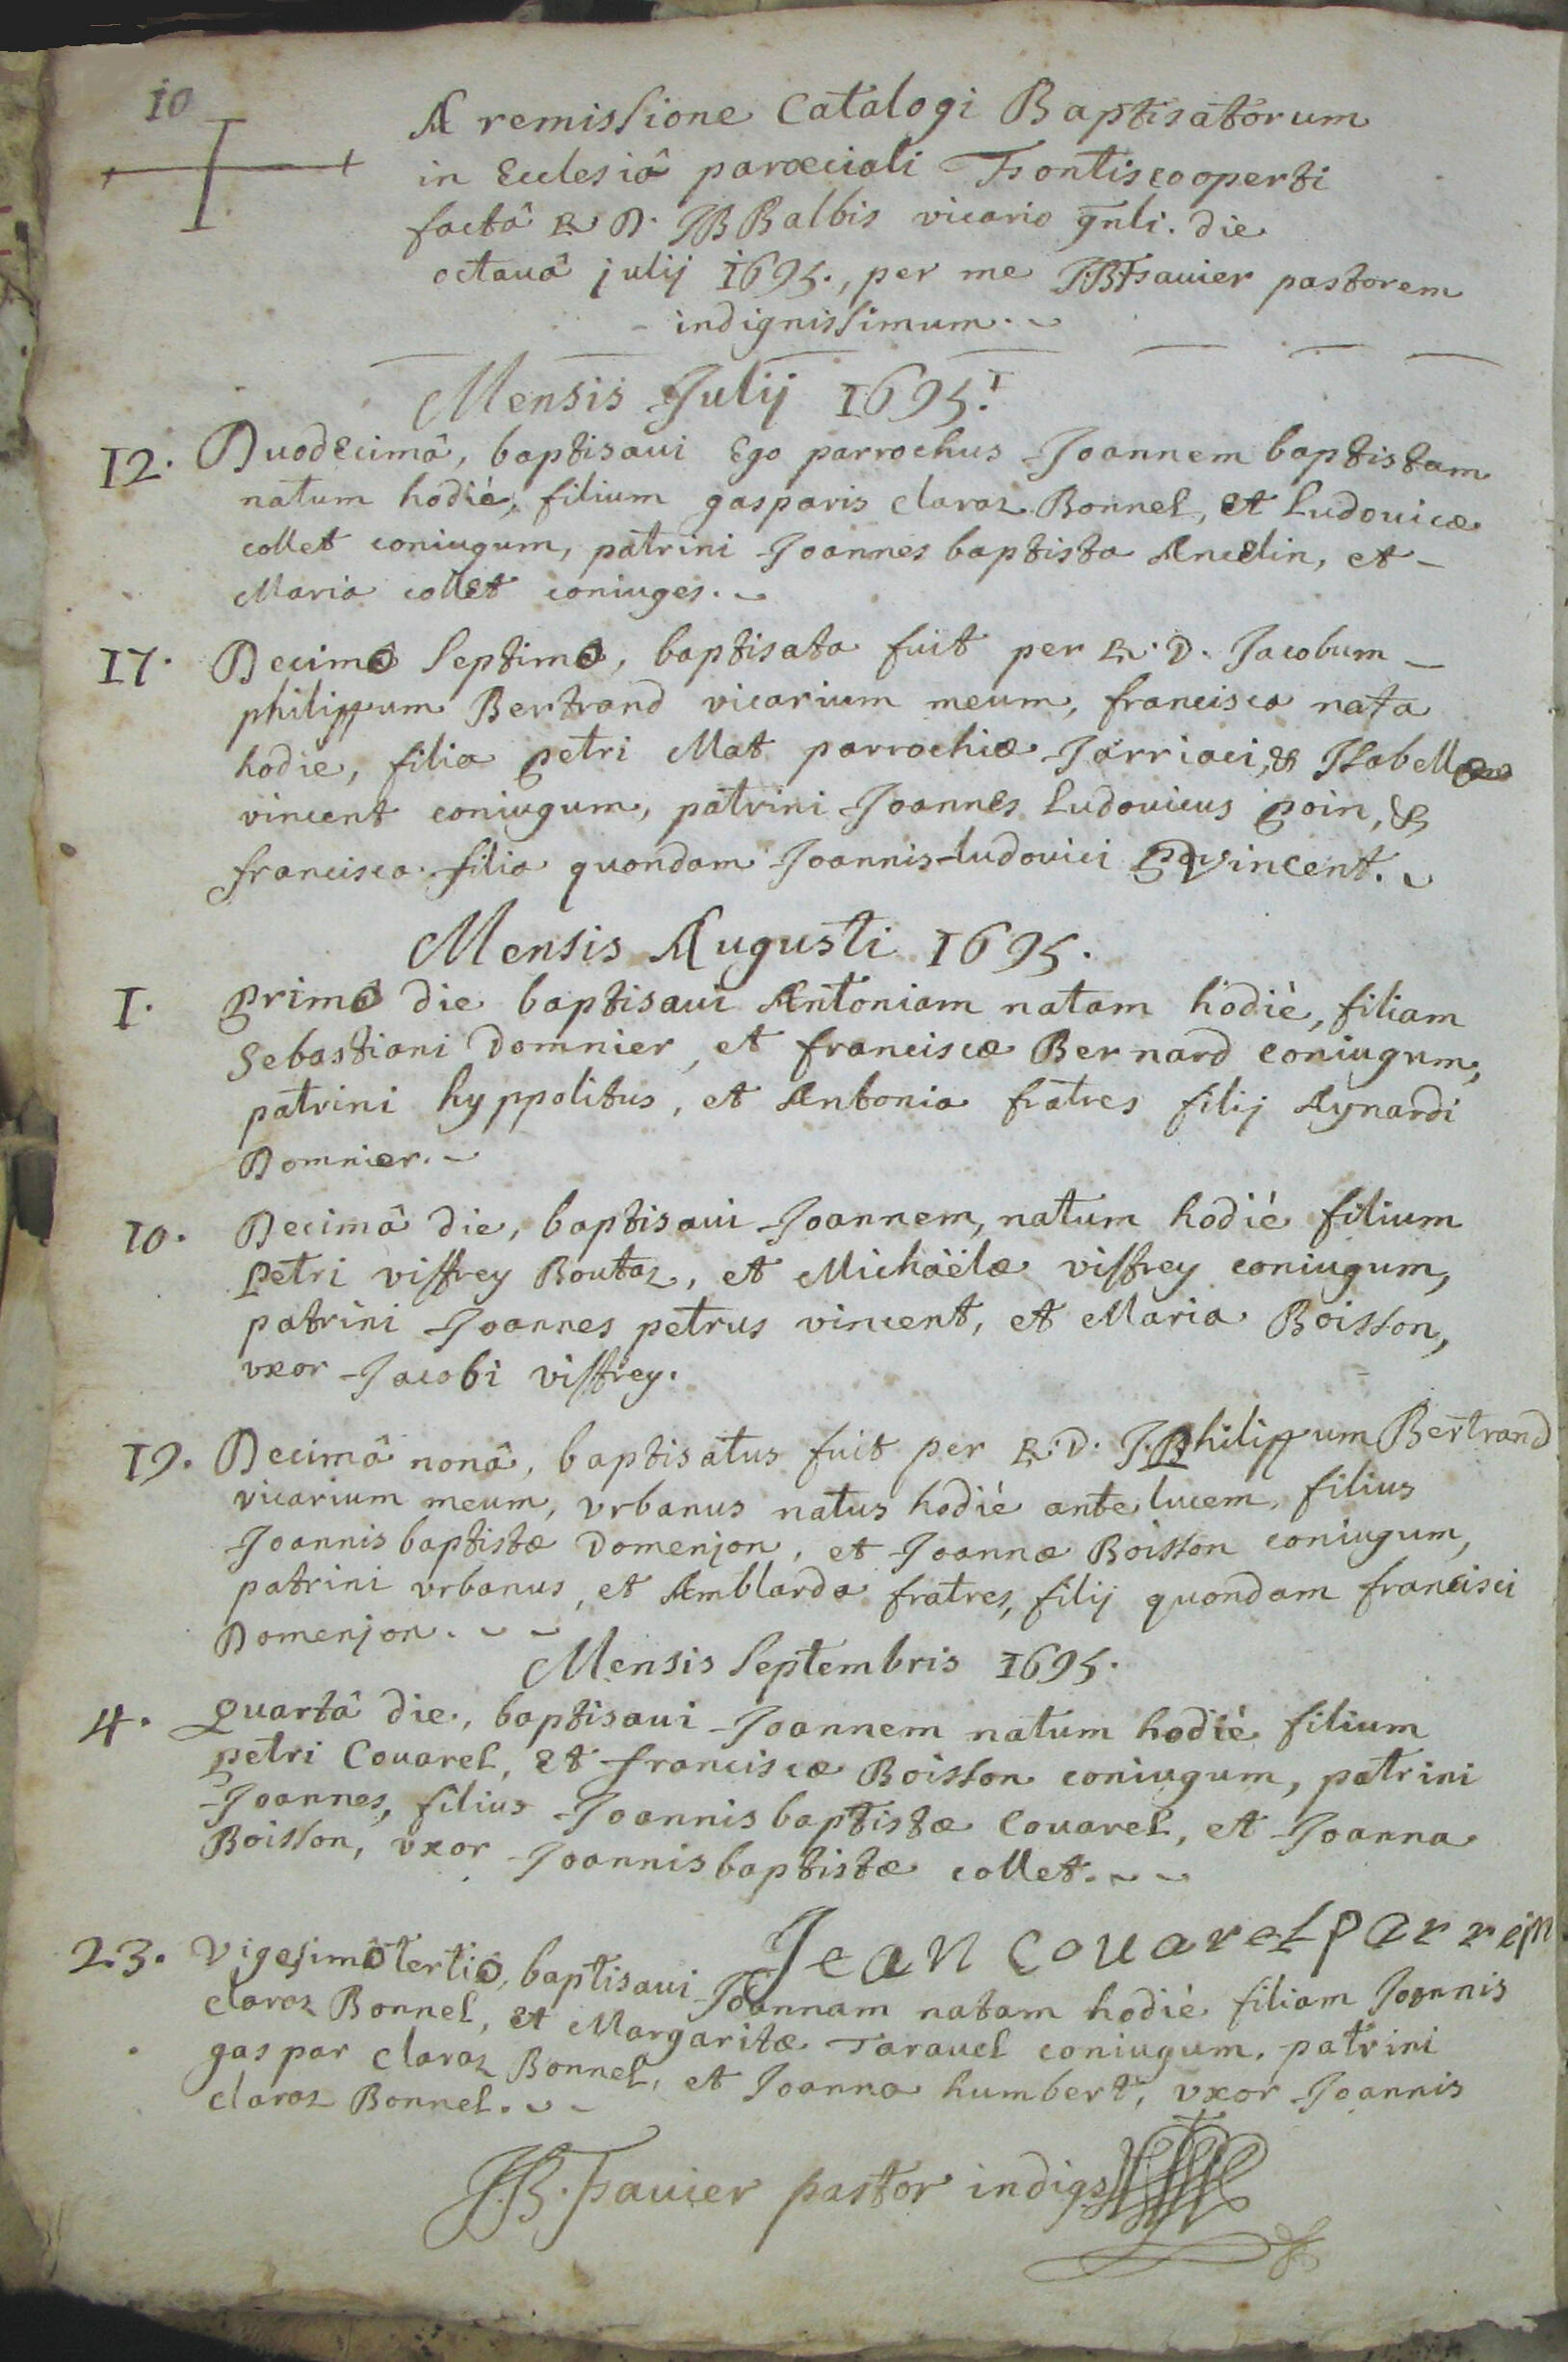 10
A remissione Catalogi Baptisatorum
in Ecclesiâ paroeciali Fontiscooperti
factâ R. D. JB Balbis vicario gnli. die
octauâ julij 1695., per me J.B Fauier pastorem
indignissimum.
Mensis Julij 1695.
12. Duodecimâ, baptisaui Ego parrochus Joannem baptistam
natum hodiè, filium gasparis claraz Bonnel, et Ludouicæ
collet coniugum, patrini Joannes baptista Ancelin, et
Maria collet coniuges.
17. Decimo Septimo, baptisata fuit per R. D. Jacobum
philippum Bertrand vicarium meum, francisca nata
hodie, filia petri Mat parrochiæ Jarriaci, & Isabellæ
vincent coniugum, patrini Joannes Ludouicus poin, &
francisca filia quondam Joannis-ludouici vincent.
Mensis Augusti 1695.
1. primo die baptisaui Antoniam natam hodiè, filiam
Sebastiani Domnier, et franciscæ Bernard coniugum,
patrini hyppolitus, et Antonia fratres filij Aynardi
Domnier.
10. Decimâ die, baptisaui Joannem, natum hodiè filium
petri viffrey Boutaz, et Michaëlæ viffrey coniugum,
patrini Joannes petrus vincent, et Maria Boisson,
vxor Jacobi viffrey.
19. Decimâ nonâ, baptisatus fuit per R. D. J. philippum Bertrand
vicarium meum, vrbanus natus hodiè ante lucem, filius
Joannis baptistæ Domenjon, et Joannæ Boisson coniugum,
patrini vrbanus, et Amblarda fratres, filij quondam francisci
Domenjon.
Mensis Septembris 1695.
4. quartâ die, baptisaui Joannem natum hodiè filium
petri Couarel, et franciscæ Boisson coniugum, patrini
Joannes, filius Joannis baptistæ Couarel, et Joanna
Boisson, vxor Joannis baptistæ collet.
Jean couarel parrein
23. vigesimo tertio, baptisaui Joannam natam hodiè filiam Joannis
claraz Bonnel, et Margaritæ Tarauel coniugum. patrini
gaspar claraz Bonnel, et Joanna humbert, vxor Joannis
claraz Bonnel.
J.B. Fauier pastor indigs